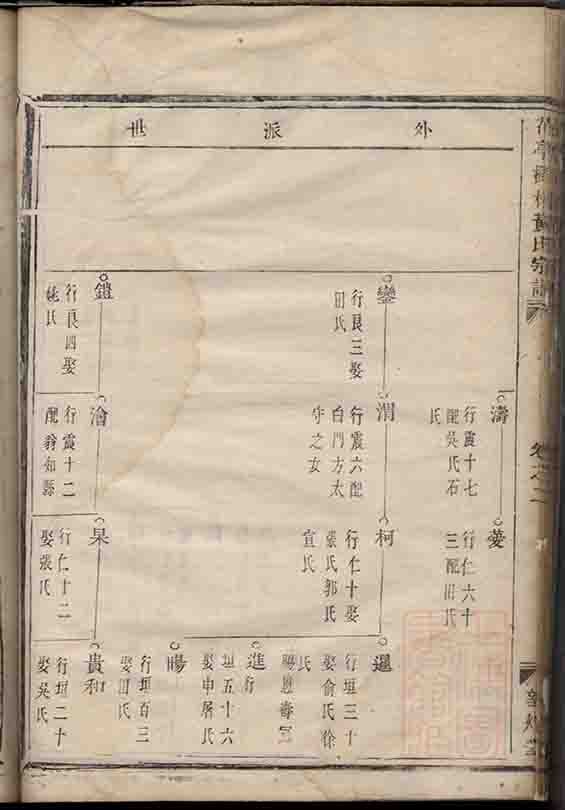 外派世
濤
行震十七
配吳氏石
氏
行仁六十
三配田氏
鑾
行良三娶
田氏
渭
行震六配
白門方太
守之女
柯
行仁十娶
張氏郭氏
宣氏
暹
行垣三十
娶俞氏徐
氏
賜恩壽官
進
行
垣五十六
娶申屠氏
暘
行垣百三
娶田氏
鎧
行良四娶
姚氏
澮
行震十二
配翁知縣
杲
行仁十二
娶張氏
貴和
行垣二十
娶吳氏
卷之二